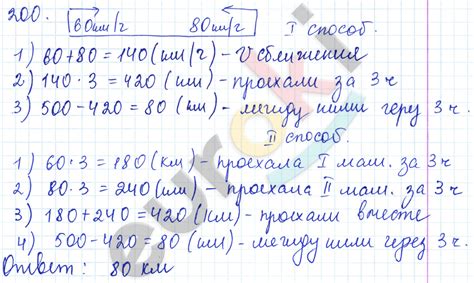 200.
60км/г 80км/г I способ.
1) 60+80=140(км/г) - V сближения
2) 140·3=420(км) - проехали за 3ч
3) 500-420=80(км) - между ними через 3ч.
II способ.
1) 60·3=180(км) - проехала I маш. за 3ч
2) 80·3=240(км) - проехала II маш. за 3ч
3) 180+240=420(км) - проехали вместе
4) 500-420=80(км) - между ними через 3ч.
Ответ: 80 км
euroki